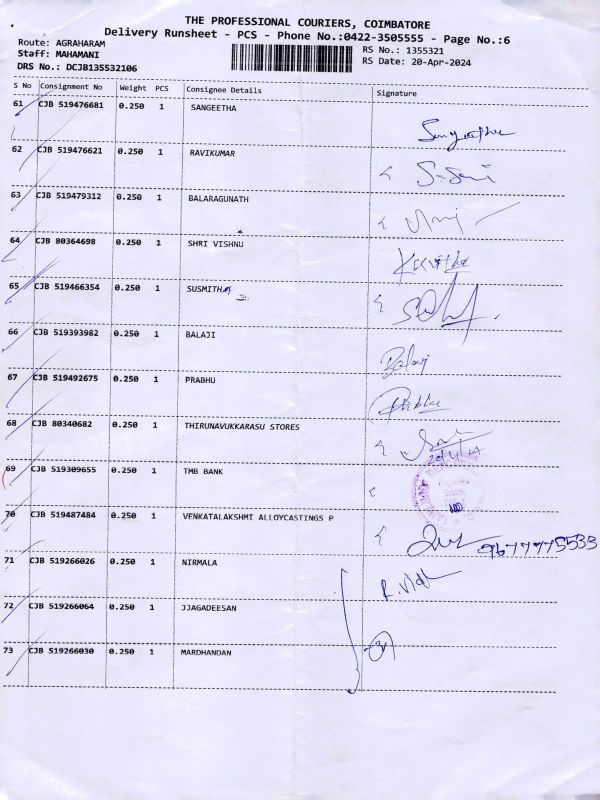 THE PROFESSIONAL COURIERS, COIMBATORE
Delivery Runsheet - PCS - Phone No.:0422-3505555 - Page No.:6
Route: AGRAHARAM RS No.: 1355321
Staff: MAHAMANI RS Date: 20-Apr-2024
DRS No.: DCJB135532106
S No Consignment No Weight PCS Consignee Details Signature
61 CJB 519476681 0.250 1 SANGEETHA
Sangeetha
62 CJB 519476621 0.250 1 RAVIKUMAR
63 CJB 519479312 0.250 1 BALARAGUNATH
64 CJB 80364698 0.250 1 SHRI VISHNU
Kavitha
65 CJB 519466354 0.250 1 SUSMITHA
66 CJB 519393982 0.250 1 BALAJI
Balaji
67 CJB 519492675 0.250 1 PRABHU
Prabhu
68 CJB 80340682 0.250 1 THIRUNAVUKKARASU STORES
69 CJB 519309655 0.250 1 TMB BANK
70 CJB 519487484 0.250 1 VENKATALAKSHMI ALLOYCASTINGS P
9677775533
71 CJB 519266026 0.250 1 NIRMALA
72 CJB 519266064 0.250 1 JJAGADEESAN
73 CJB 519266030 0.250 1 MARDHANDAN